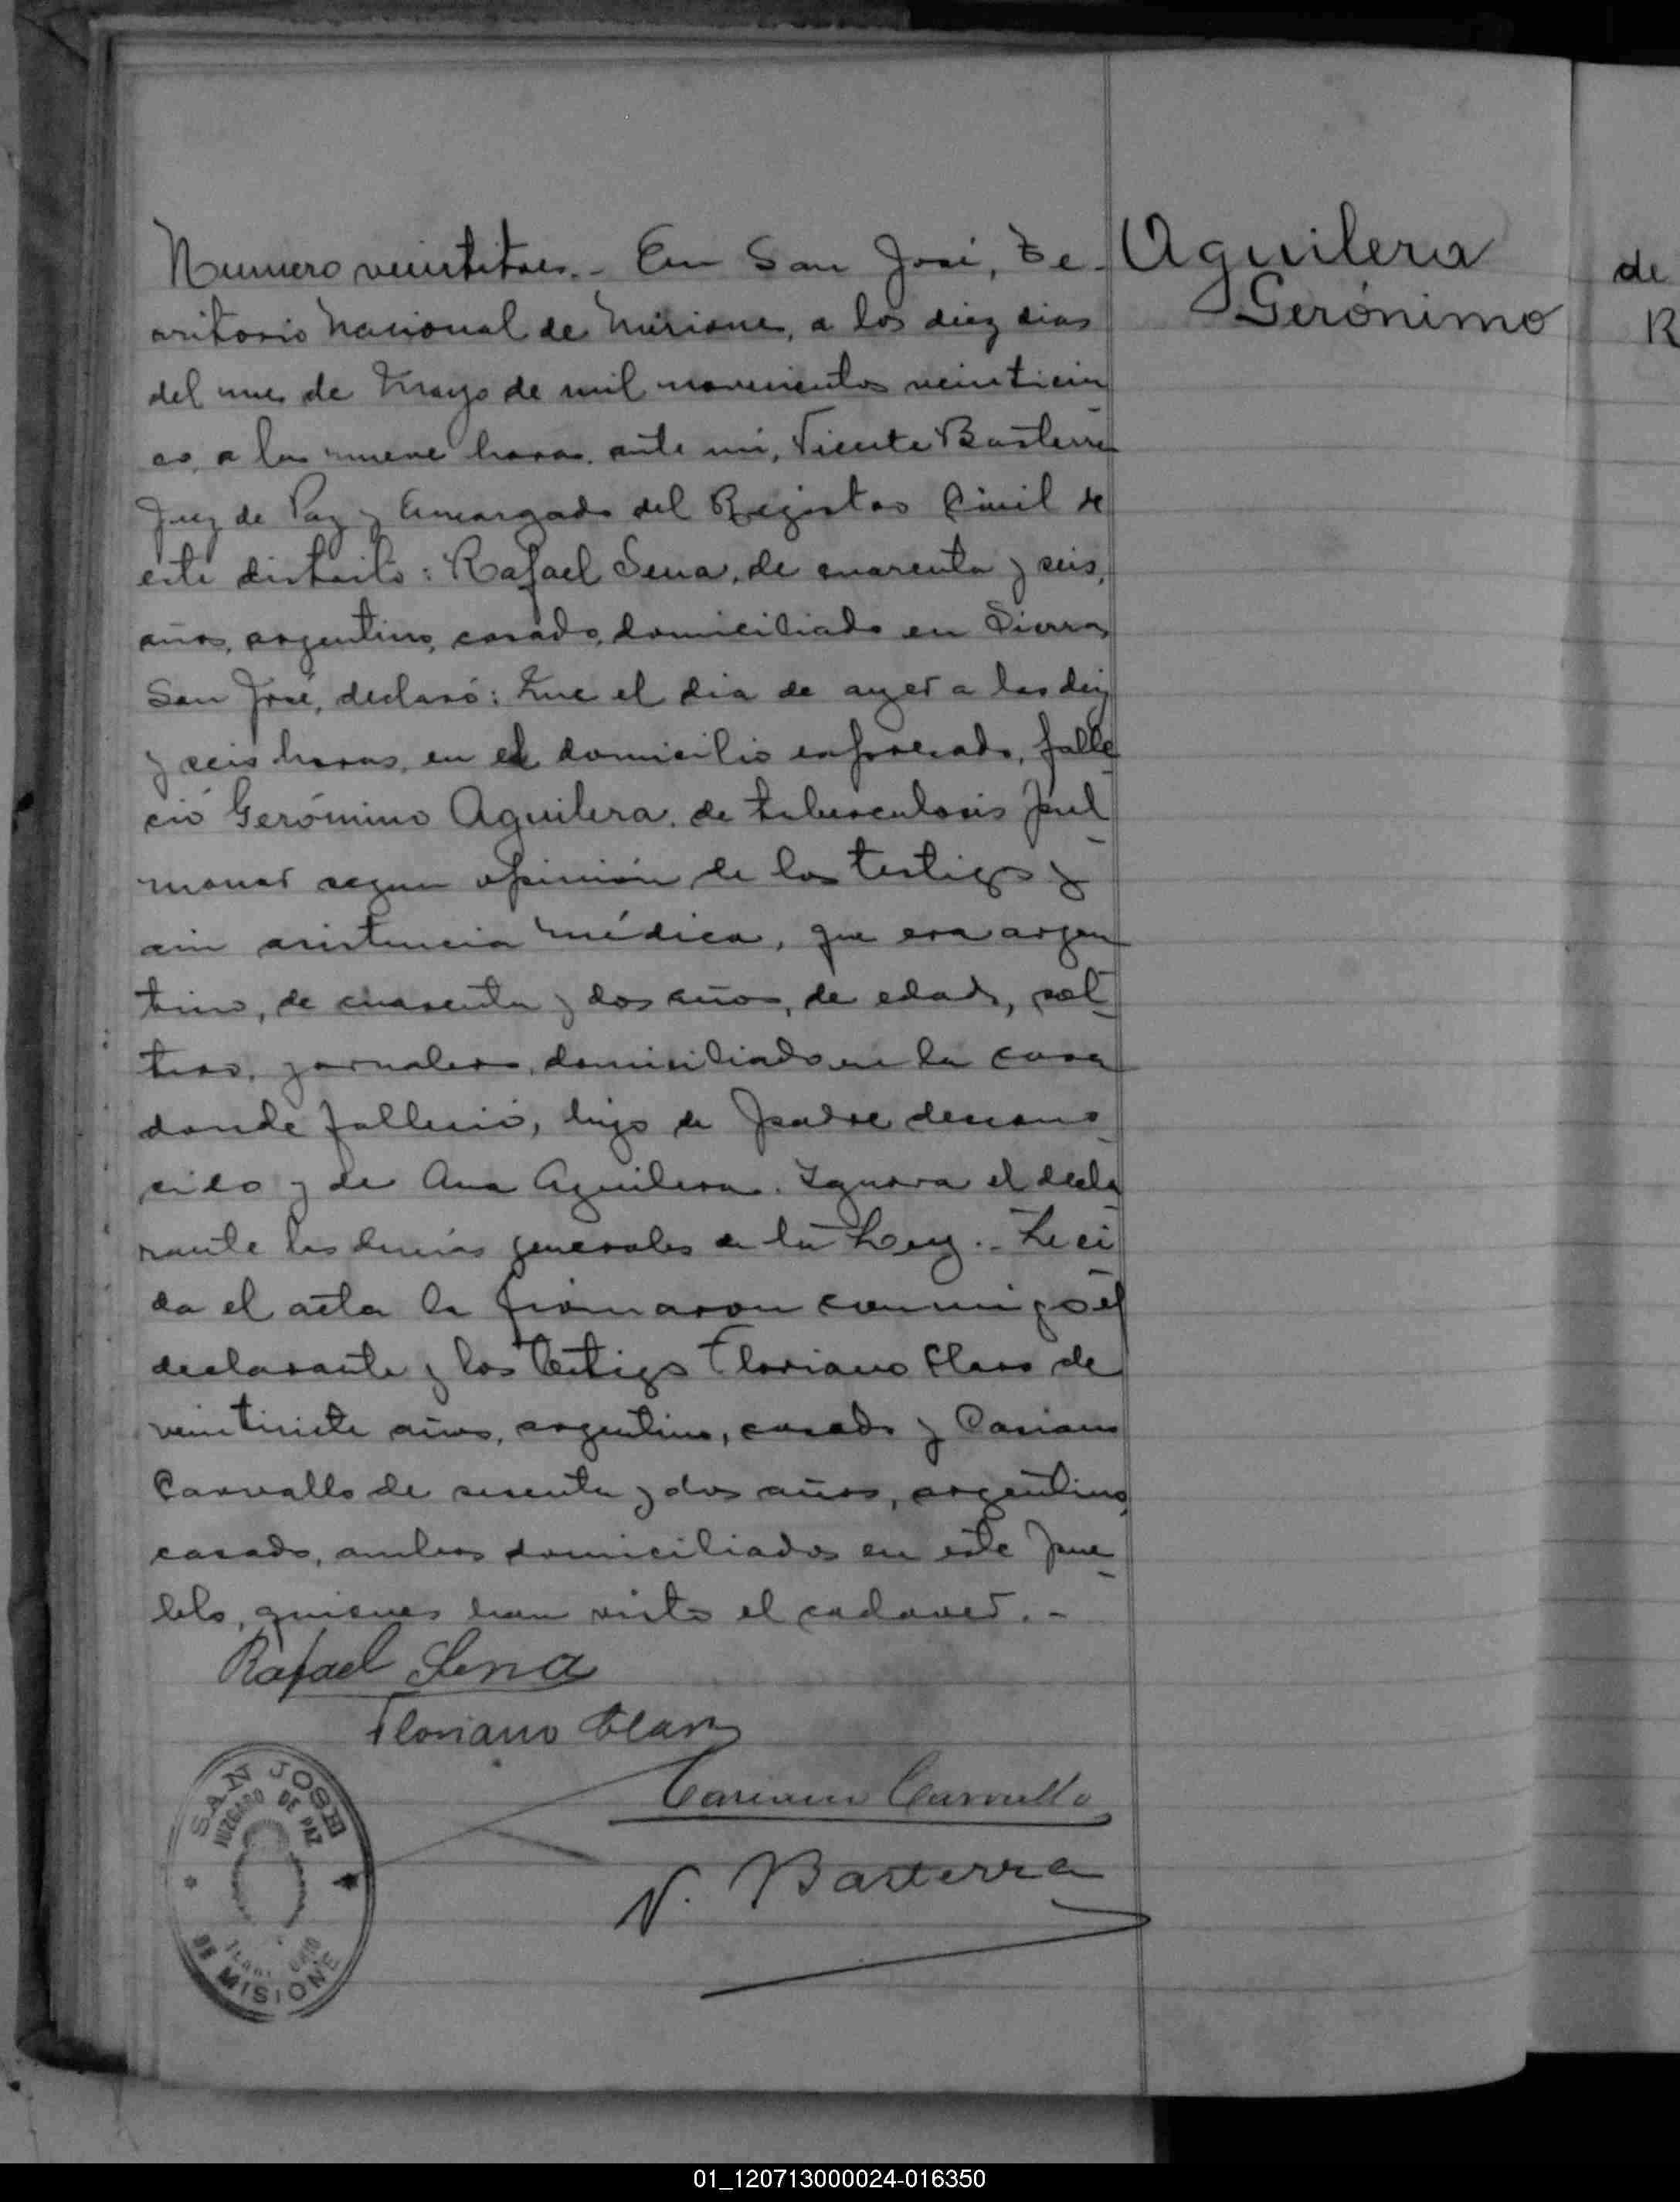 Numero veintitres.- En San José, Te-
rritorio Nacional de Misiones, a los diez dias
del mes de Mayo de mil novecientos veinticin
co, a las nueve horas, ante mi, Vicente Basterra
Juez de Paz y Encargado del Registro Civil de
este distrito: Rafael Sena, de cuarenta y seis,
años, argentino, casado, domiciliado en Sierra
San José, declaró: Que el dia de ayer a las diez
y seis horas, en el domicilio expresado, falle
ció Gerónimo Aguilera, de tuberculosis pul-
monar segun opinión de los testigos y
sin asistencia médica, que era argen
tino, de cuarenta y dos años, de edad, sol-
tero, jornalero, domiciliado en la casa
donde falleció, hijo de padre descono-
cido y de Ana Aguilera. Ignora el decla
rante las demás generales de la Ley.- Leí
da el acta la firmaron conmigo el
declarante y los testigos Floriano Claro de
veintisiete años, argentino, casado y Casiano
Carvallo de sesenta y dos años, argentino,
casado, ambos domiciliados en este pue-
blo, quienes han visto el cadaver.-
Aguilera
Gerónimo
de
R
Rafael Sena
Floriano Claro
Casiano Carvallo
V. Basterra
SAN JOSE
JUZGADO DE PAZ
DE MISIONE
01_120713000024-016350